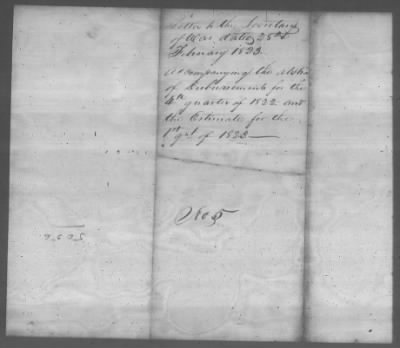 Letter to the Secretary
of War dated 28th
February 1823
accompanying the Abstract
of Disbursements for the
4th quarter of 1822 and
the Estimate for the
1st qr of 1823
No 5